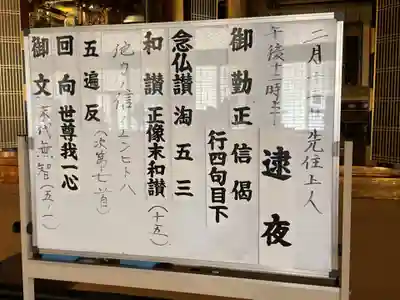 二月十二日先住上人
午後十二時半
逮夜
御勤 正信偈
行四句目下
念仏讃 淘五三
和讃 正像末和讃(十五)
弥陀ノ信ズルヒトハ
五遍反(次第七首)
回向 世尊我一心
御文 末代無智(五ノ一)